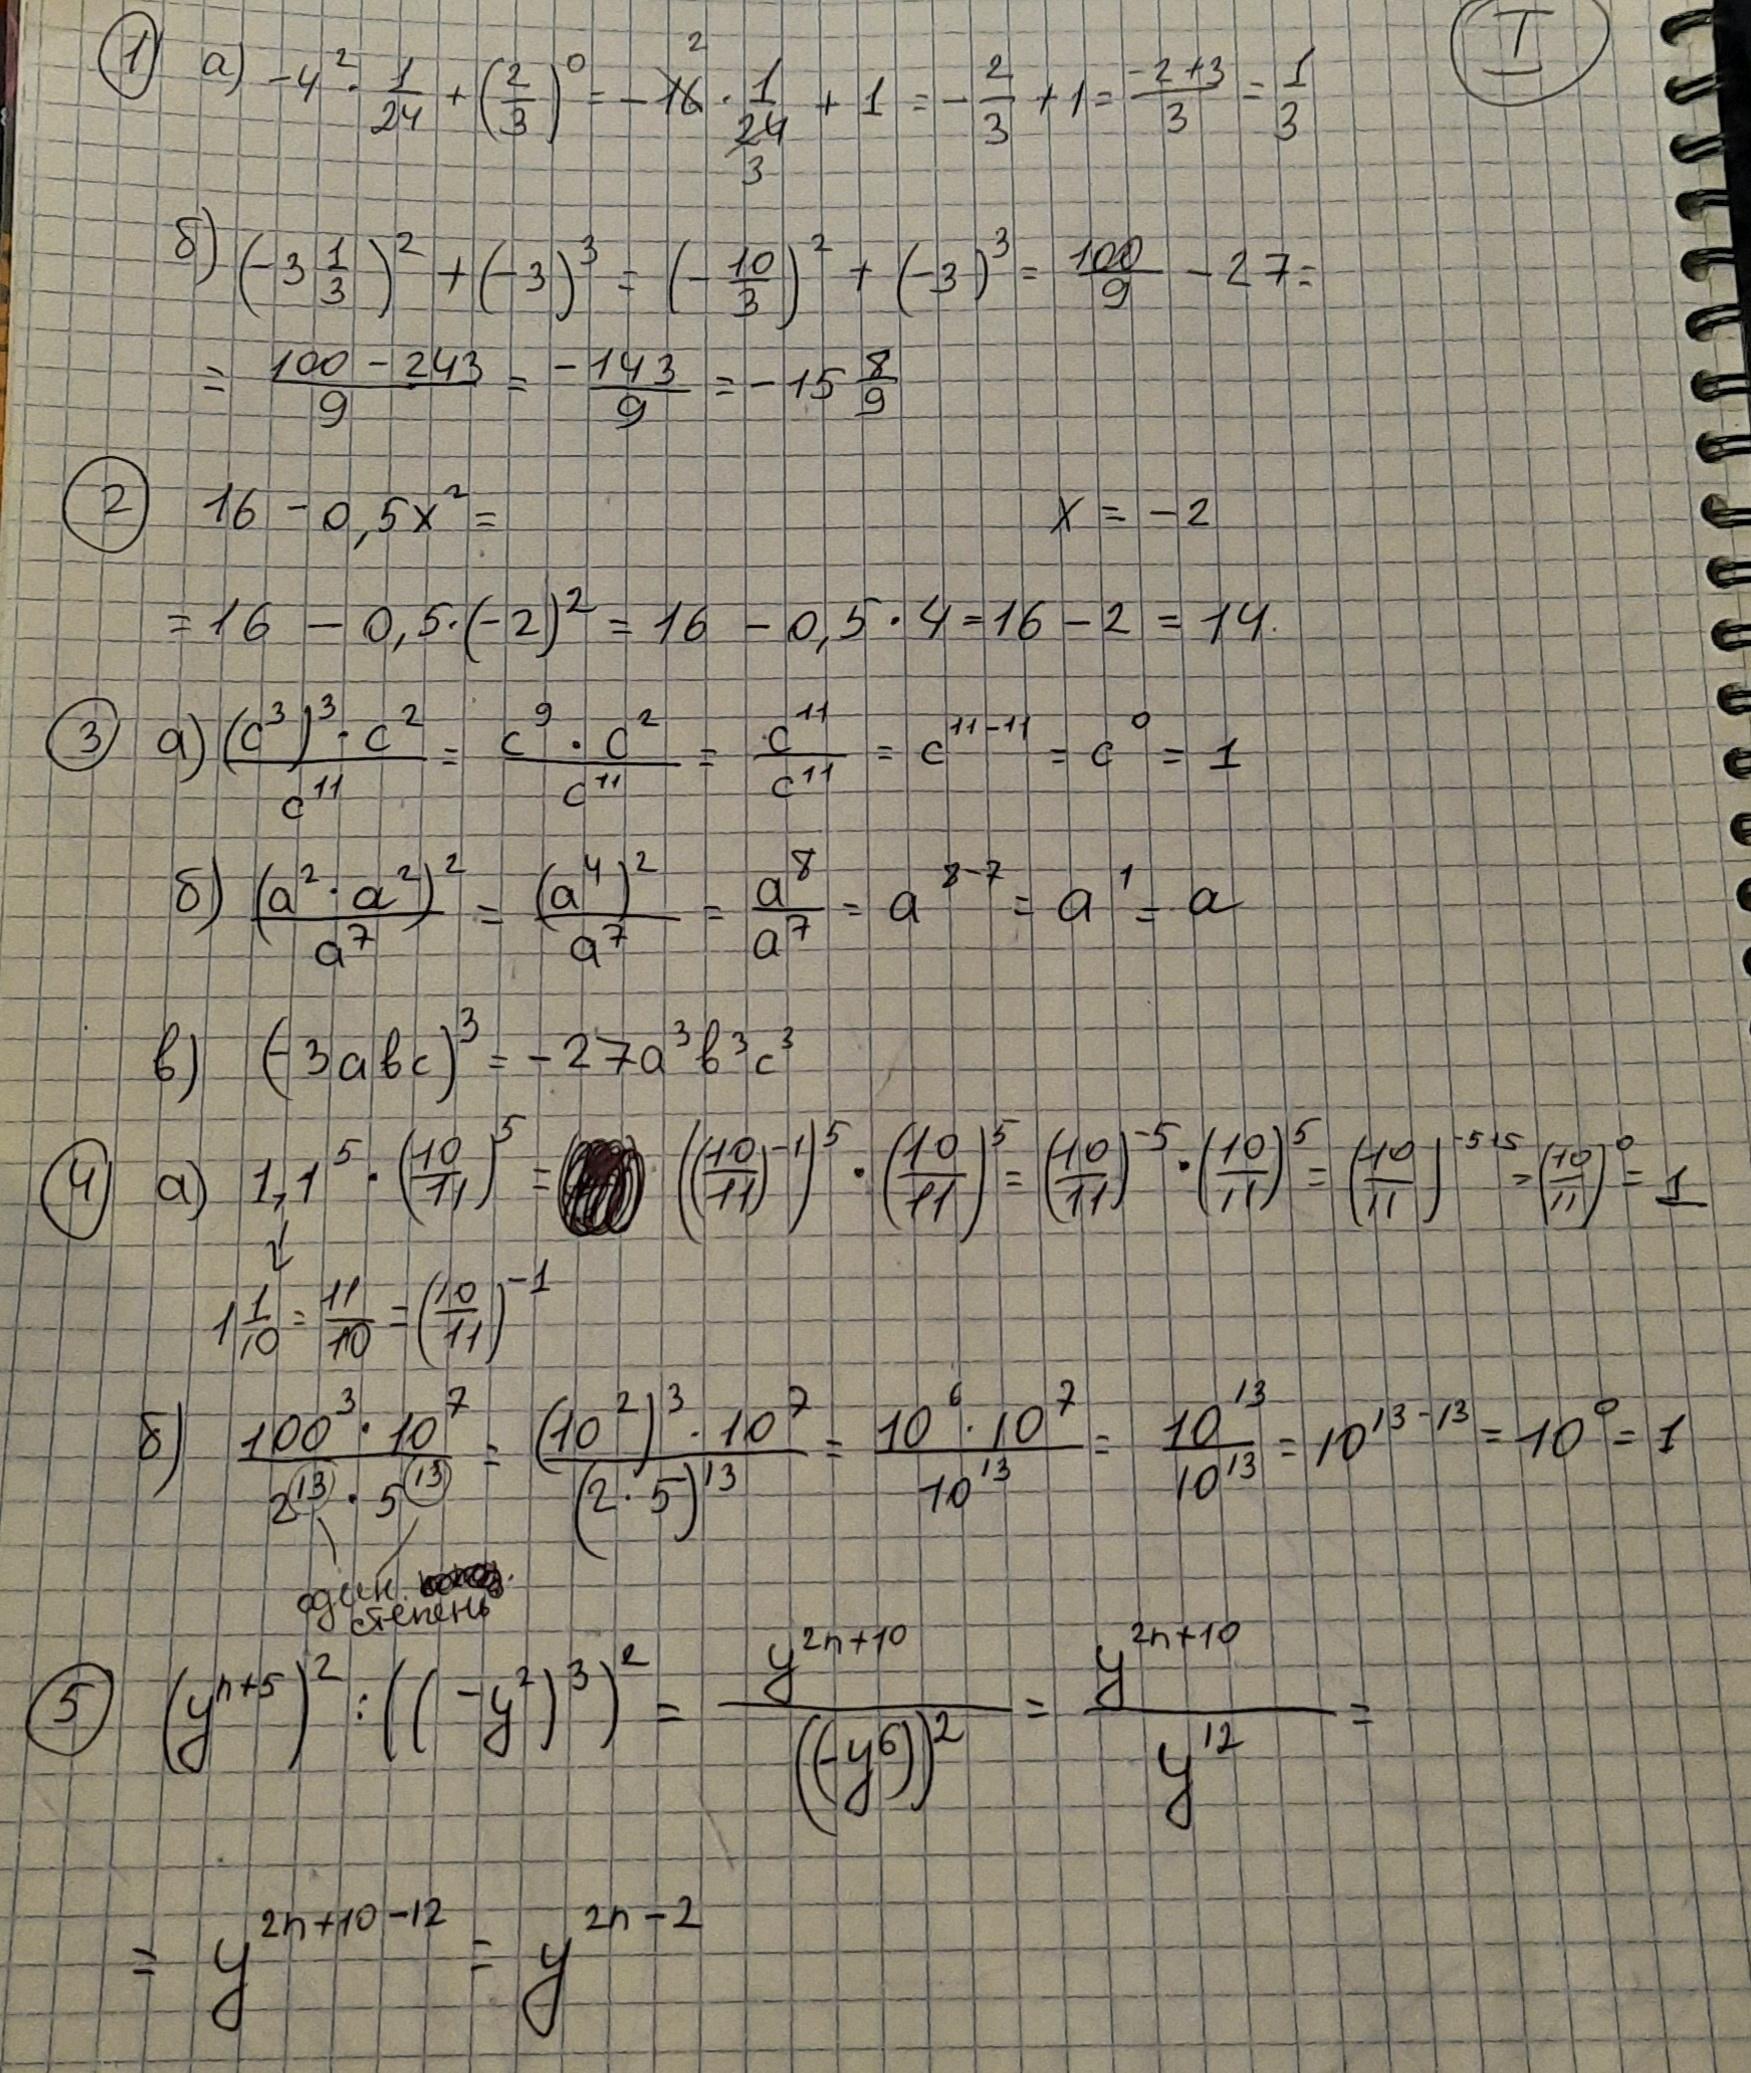 I
① а) -4² · 1/24 + (2/3)⁰ = -16 · 1/24 + 1 = -2/3 + 1 = (-2+3)/3 = 1/3
2
3
б) (-3 1/3)² + (-3)³ = (-10/3)² + (-3)³ = 100/9 - 27 =
= (100 - 243)/9 = -143/9 = -15 8/9
② 16 - 0,5x² = x = -2
= 16 - 0,5·(-2)² = 16 - 0,5 · 4 = 16 - 2 = 14.
③ а) ((c³)³ · c²)/c¹¹ = (c⁹ · c²)/c¹¹ = c¹¹/c¹¹ = c¹¹⁻¹¹ = c⁰ = 1
б) (a² · a²)²/a⁷ = (a⁴)²/a⁷ = a⁸/a⁷ = a⁸⁻⁷ = a¹ = a
в) (-3abc)³ = -27a³b³c³
④ а) 1,1⁵ · (10/11)⁵ = ((10/11)⁻¹)⁵ · (10/11)⁵ = (10/11)⁻⁵ · (10/11)⁵ = (10/11)⁻⁵⁺⁵ = (10/11)⁰ = 1
1 1/10 = 11/10 = (10/11)⁻¹
б) (100³ · 10⁷)/(2¹³ · 5¹³) = ((10²)³ · 10⁷)/(2 · 5)¹³ = (10⁶ · 10⁷)/10¹³ = 10¹³/10¹³ = 10¹³⁻¹³ = 10⁰ = 1
один.
степень
⑤ (yⁿ⁺⁵)² : ((-y²)³)² = y²ⁿ⁺¹⁰/((-y⁶))² = y²ⁿ⁺¹⁰/y¹² =
= y²ⁿ⁺¹⁰⁻¹² = y²ⁿ⁻²